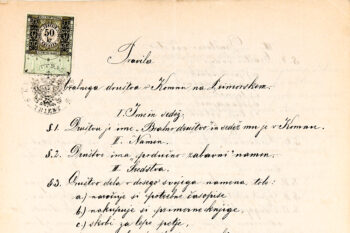 50
Pravila
bralnega društva v Komnu na Primorskem.
I. Ime in sedež.
§1. Društvu je ime „Bralno društvo" in sedež mu je v Komnu.
II. Namen.
§2. Društvo ima podučno zabavni namen.
III. Sredstva.
§3. Društvo dela v dosego svojega namena tole:
a) naročuje si potrebne časopise
b) nakupuje si primerne knjige,
c) skrbi za lepo petje,